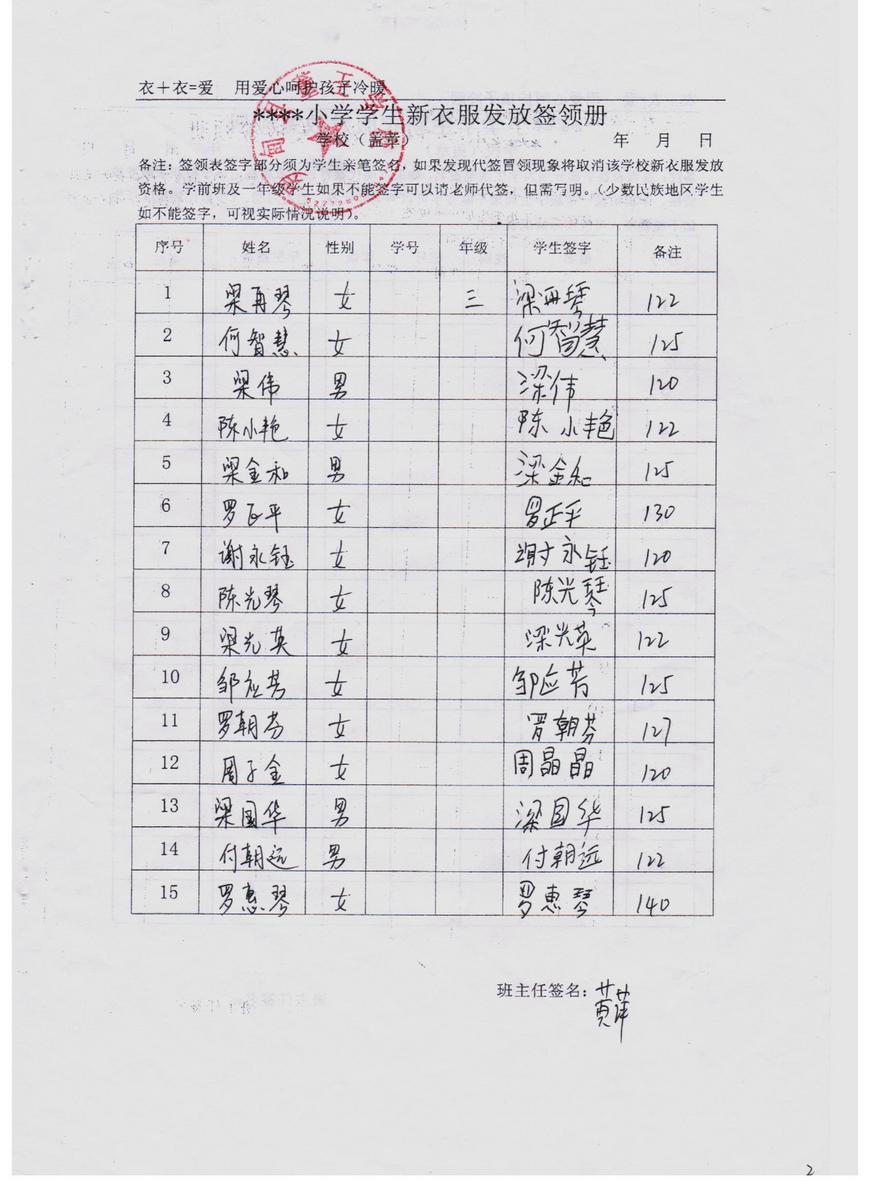 衣＋衣=爱 用爱心呵护孩子冷暖
****小学学生新衣服发放签领册
学校（盖章） 年 月 日
备注：签领表签字部分须为学生亲笔签名，如果发现代签冒领现象将取消该学校新衣服发放
资格。学前班及一年级学生如果不能签字可以请老师代签，但需写明。（少数民族地区学生
如不能签字，可视实际情况说明）。
序号 姓名 性别 学号 年级 学生签字 备注
1 梁再琴 女 三 梁再琴 122
2 何智慧 女 何智慧 125
3 梁伟 男 梁伟 120
4 陈小艳 女 陈小艳 122
5 梁金和 男 梁金和 125
6 罗正平 女 罗正平 130
7 谢永钰 女 谢永钰 120
8 陈光琴 女 陈光琴 125
9 梁光英 女 梁光英 122
10 邹应芳 女 邹应芳 125
11 罗朝芬 女 罗朝芬 127
12 周子金 女 周晶晶 120
13 梁国华 男 梁国华 125
14 付朝远 男 付朝远 122
15 罗惠琴 女 罗惠琴 140
班主任签名：黄萍
2